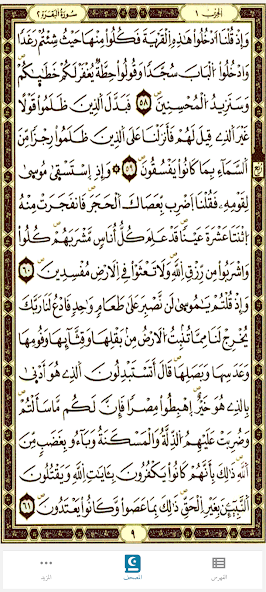 الجزء ١ سورة البقرة ٢
وَإِذْ قُلْنَا ادْخُلُوا هَٰذِهِ الْقَرْيَةَ فَكُلُوا مِنْهَا حَيْثُ شِئْتُمْ رَغَدًا
وَادْخُلُوا الْبَابَ سُجَّدًا وَقُولُوا حِطَّةٌ نَغْفِرْ لَكُمْ خَطَايَاكُمْ
وَسَنَزِيدُ الْمُحْسِنِينَ ٥٨ فَبَدَّلَ الَّذِينَ ظَلَمُوا قَوْلًا
غَيْرَ الَّذِي قِيلَ لَهُمْ فَأَنْزَلْنَا عَلَى الَّذِينَ ظَلَمُوا رِجْزًا مِنَ
السَّمَاءِ بِمَا كَانُوا يَفْسُقُونَ ٥٩ وَإِذِ اسْتَسْقَىٰ مُوسَىٰ
لِقَوْمِهِ فَقُلْنَا اضْرِبْ بِعَصَاكَ الْحَجَرَ فَانْفَجَرَتْ مِنْهُ
اثْنَتَا عَشْرَةَ عَيْنًا قَدْ عَلِمَ كُلُّ أُنَاسٍ مَشْرَبَهُمْ كُلُوا
وَاشْرَبُوا مِنْ رِزْقِ اللَّهِ وَلَا تَعْثَوْا فِي الْأَرْضِ مُفْسِدِينَ ٦٠
وَإِذْ قُلْتُمْ يَا مُوسَىٰ لَنْ نَصْبِرَ عَلَىٰ طَعَامٍ وَاحِدٍ فَادْعُ لَنَا رَبَّكَ
يُخْرِجْ لَنَا مِمَّا تُنْبِتُ الْأَرْضُ مِنْ بَقْلِهَا وَقِثَّائِهَا وَفُومِهَا
وَعَدَسِهَا وَبَصَلِهَا قَالَ أَتَسْتَبْدِلُونَ الَّذِي هُوَ أَدْنَىٰ
بِالَّذِي هُوَ خَيْرٌ اهْبِطُوا مِصْرًا فَإِنَّ لَكُمْ مَا سَأَلْتُمْ
وَضُرِبَتْ عَلَيْهِمُ الذِّلَّةُ وَالْمَسْكَنَةُ وَبَاءُوا بِغَضَبٍ مِنَ
اللَّهِ ذَٰلِكَ بِأَنَّهُمْ كَانُوا يَكْفُرُونَ بِآيَاتِ اللَّهِ وَيَقْتُلُونَ
النَّبِيِّينَ بِغَيْرِ الْحَقِّ ذَٰلِكَ بِمَا عَصَوْا وَكَانُوا يَعْتَدُونَ ٦١
٩
الفهرس المصحف المزيد